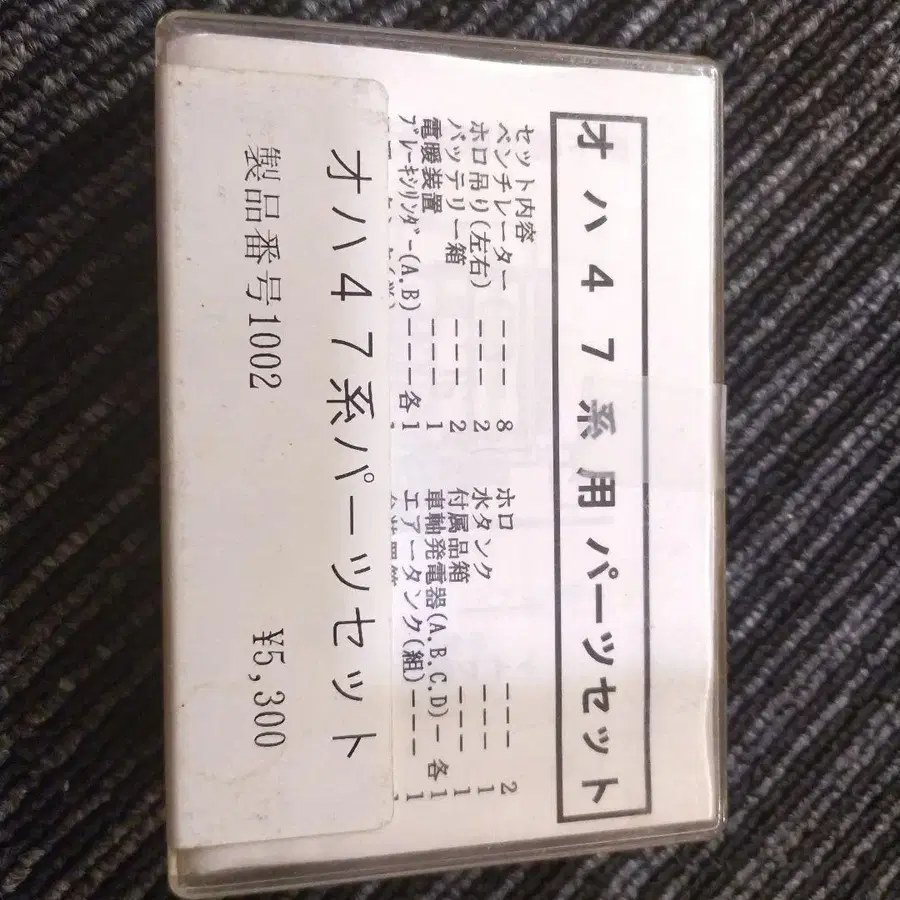 オハ47系用パーツセット
セット内容
ベンチレーター --- 8
ホロ吊り(左右) --- 2
バッテリー箱 --- 2
電暖装置 --- 1
ブレーキシリンダー(A,B)---各1
ホロ --- 2
水タンク --- 1
付属品箱 --- 1
車軸発電器(A,B,C,D)- 各1
エアータンク(組)--- 1
オハ47系パーツセット
製品番号1002 ¥5,300